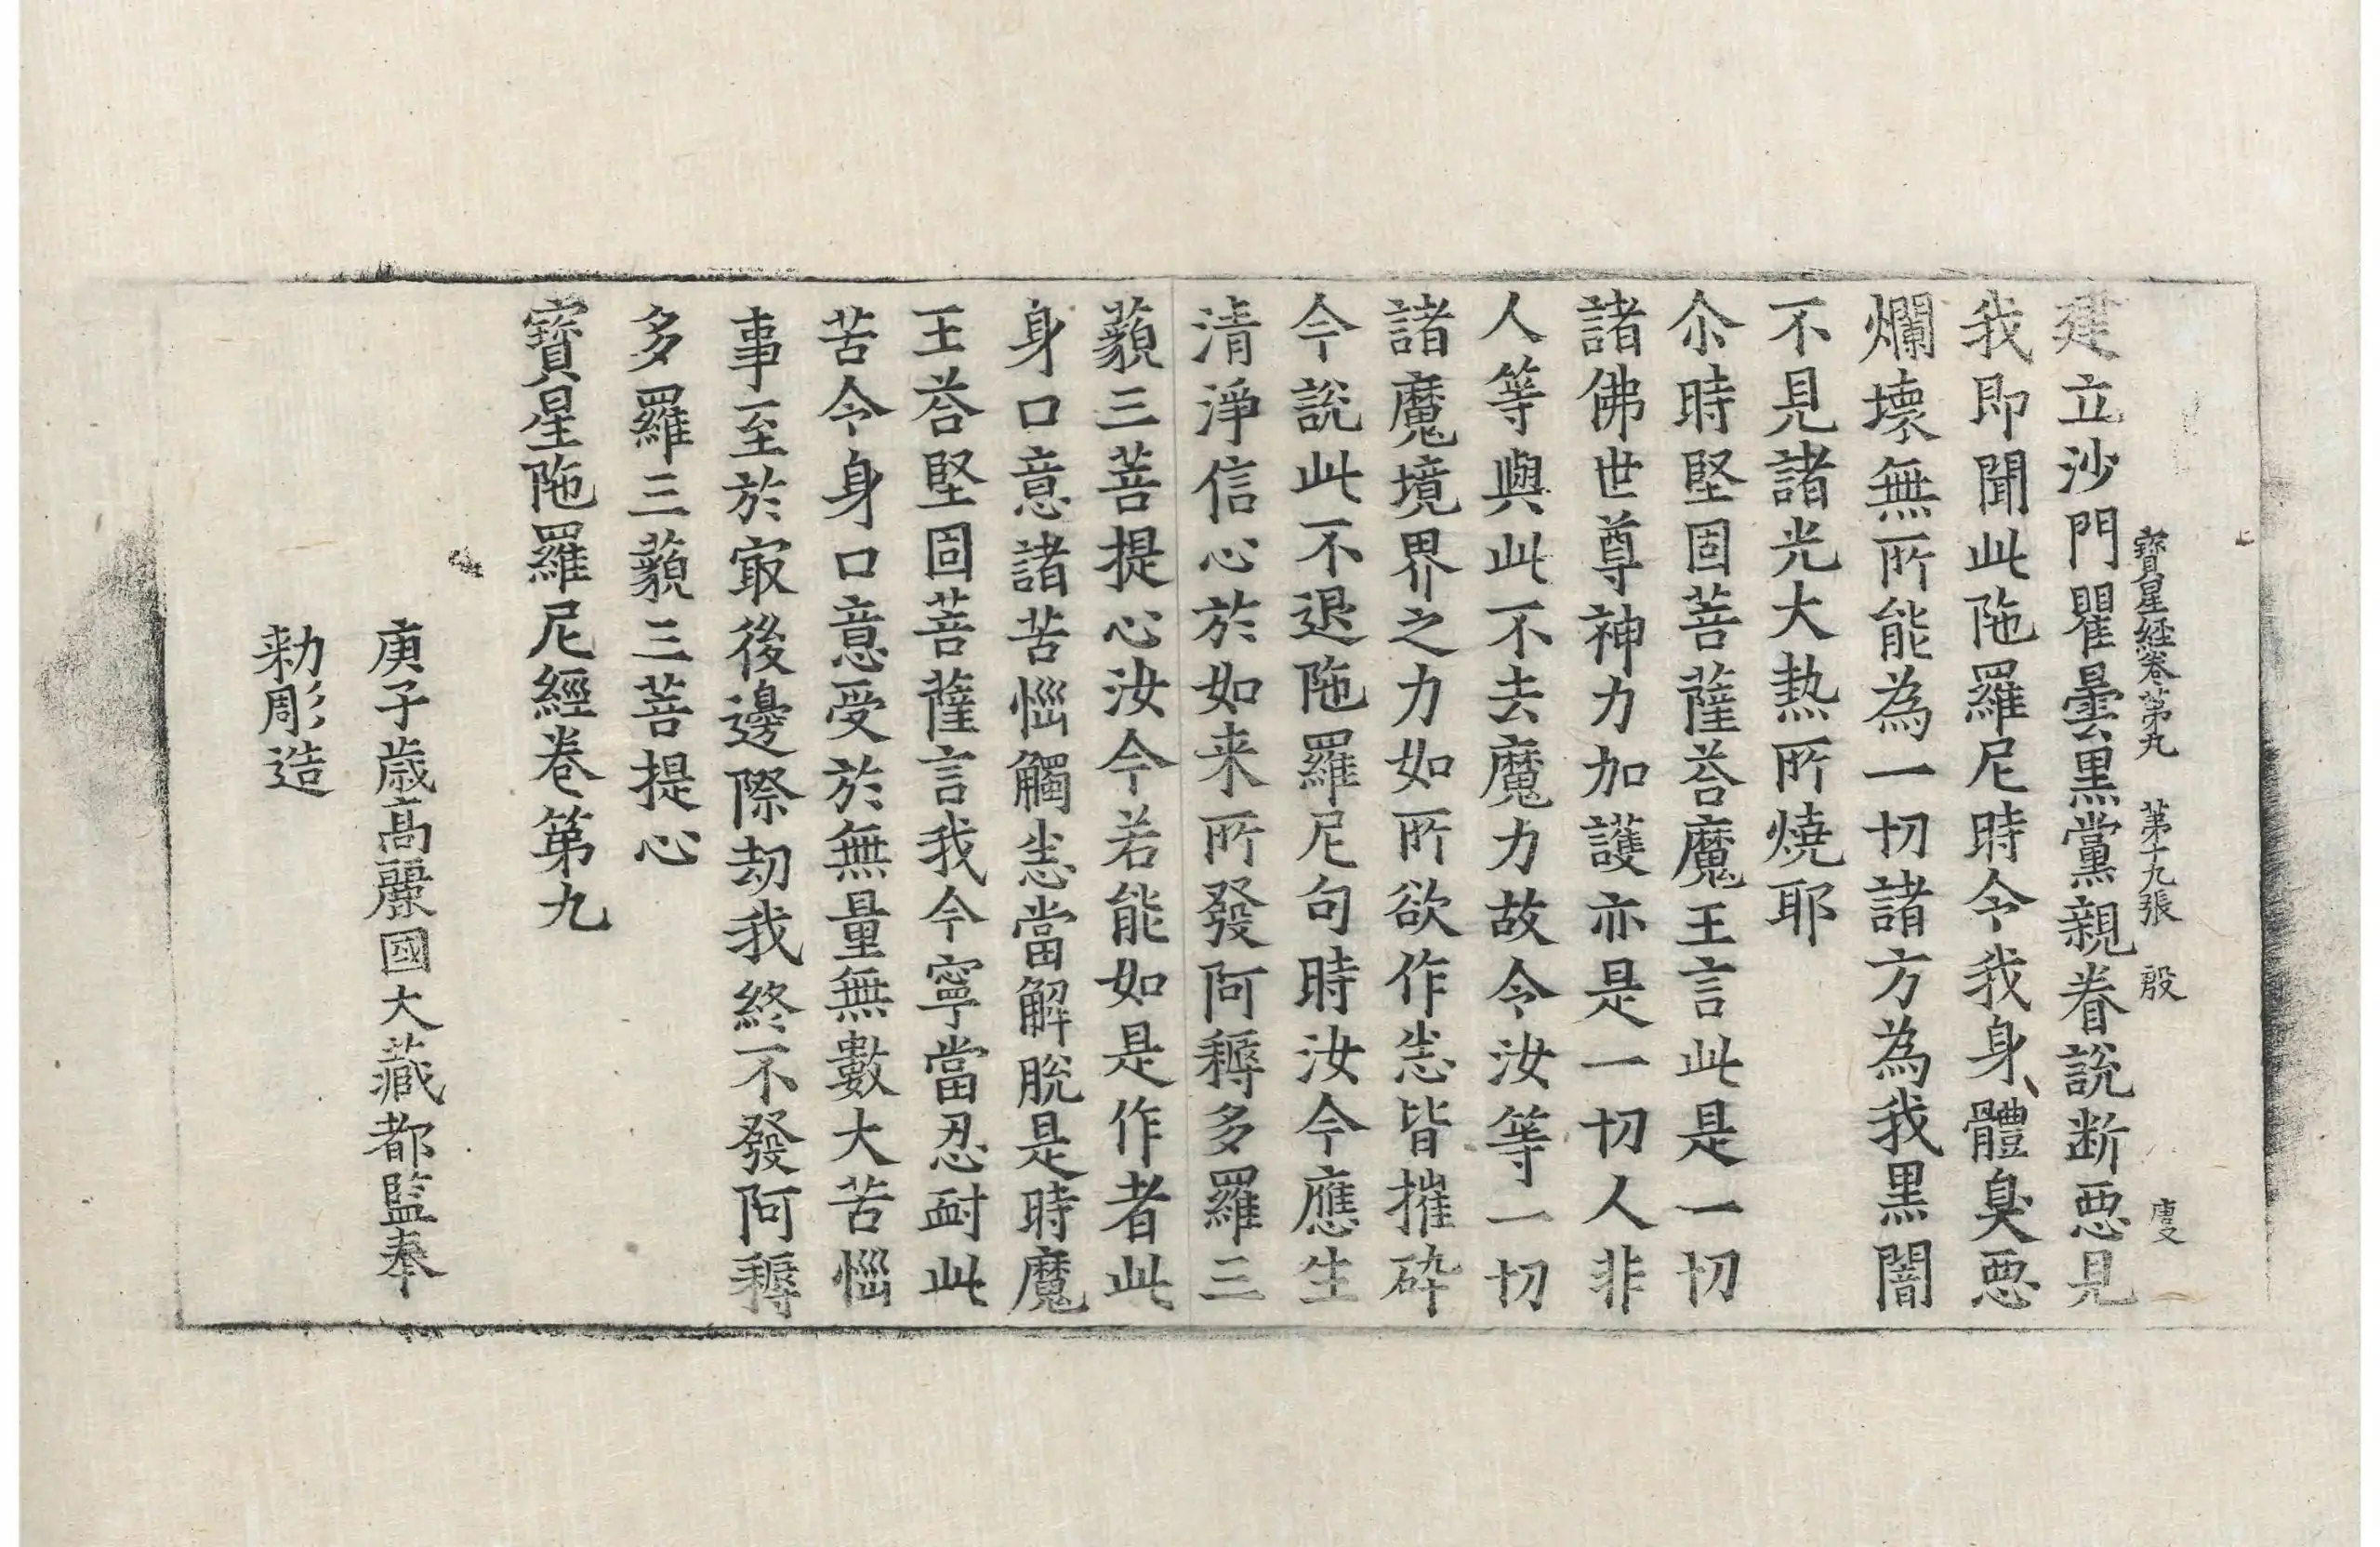 寶星經卷第九 第十九張 殷
建立沙門瞿曇黑黨親眷說断惡見
我即聞此陁羅尼時令我身體臭惡
爛壞無所能為一切諸方為我黒闇
不見諸光大热所燒耶
尒時堅固菩薩荅魔王言此是一切
諸佛世尊神力加護亦是一切人非
人等與此不去魔力故令汝等一切
諸魔境界之力如所欲作恙皆摧碎
今說此不退陁羅尼句時汝今應生
清淨信心於如来所發阿耨多羅三
藐三菩提心汝今若能如是作者此
身口意諸苦惱觸恙當解脫是時魔
王荅堅固菩薩言我今寧當忍耐此
苦令身口意受於無量無數大苦惱
事至於㝡後邊際劫我終不發阿耨
多羅三藐三菩提心
寶星陁羅尼經卷第九
庚子歲高麗國大藏都監奉
勑彫造